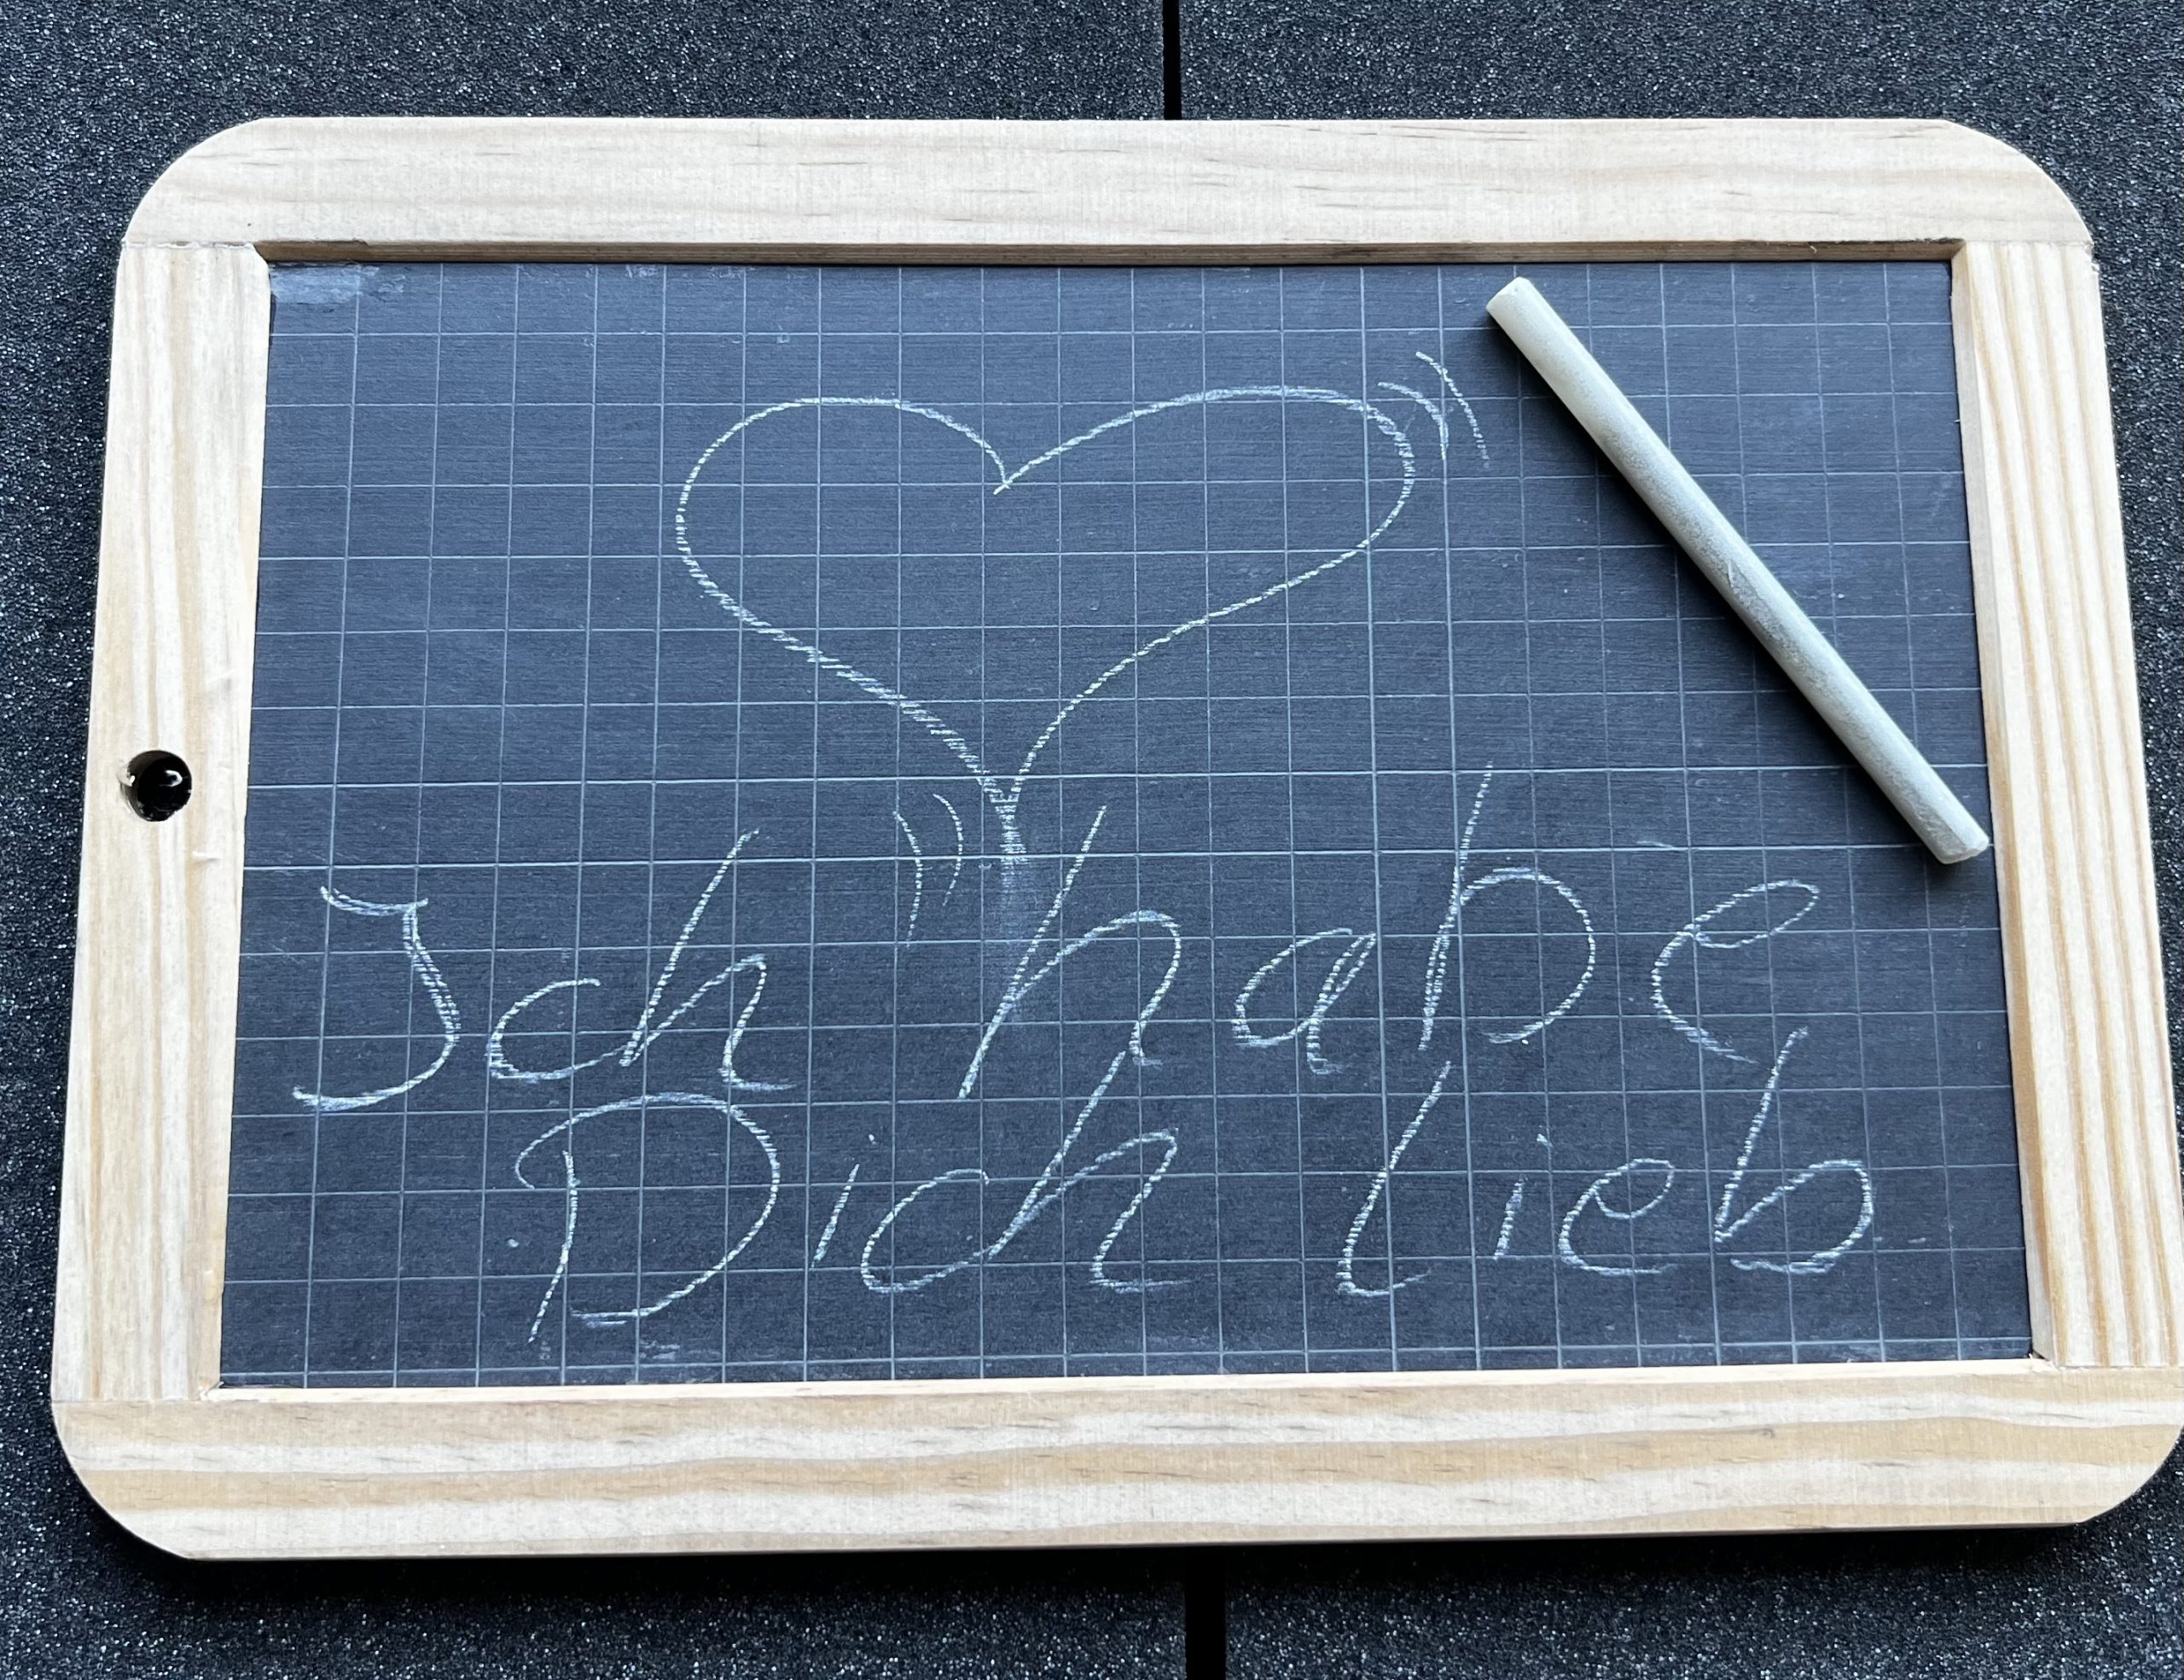 Ich habe
Dich lieb